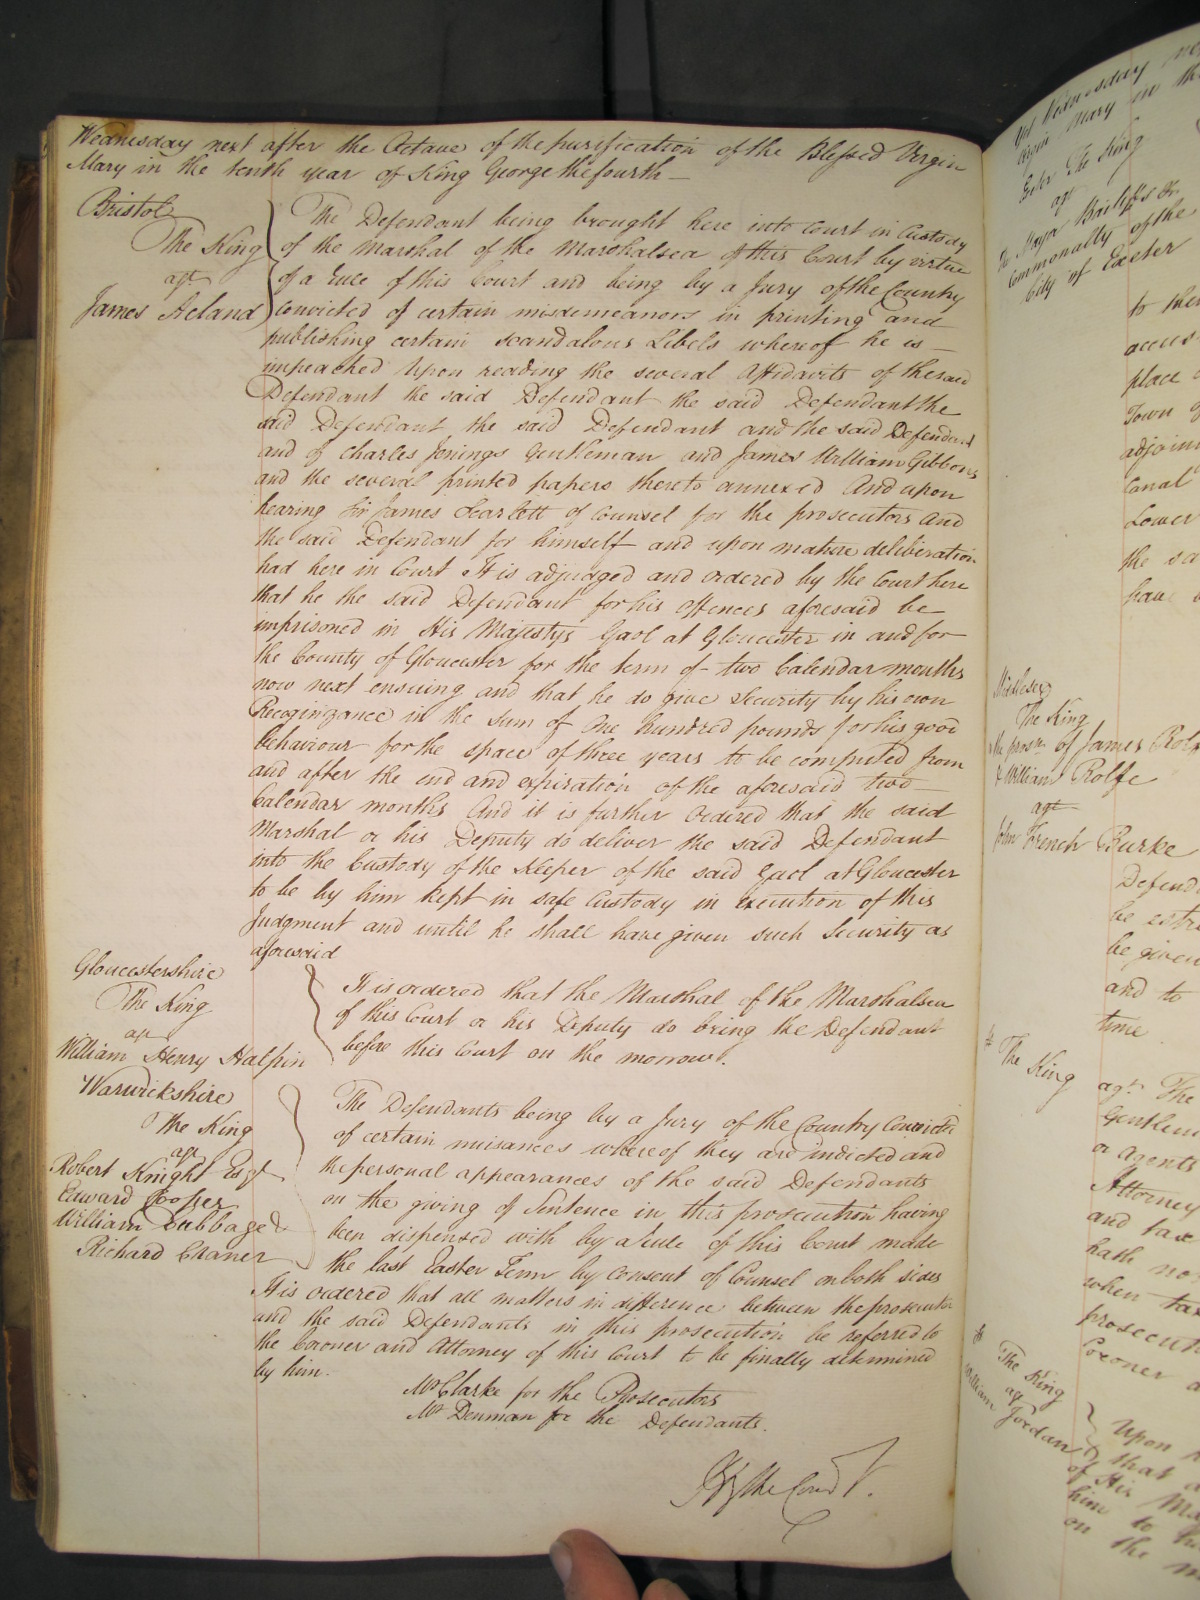 Wednesday next after the Octave of the purification of the Blessed Virgin
Mary in the tenth year of King George the fourth —
Bristol
The King
agt
James Acland
The Defendant being brought here into Court in Custody
of the Marshal of the Marshalsea of this Court by virtue
of a Rule of this Court and being by a Jury of the Country
Convicted of certain misdemeanors in printing and
publishing certain scandalous Libels whereof he is —
impeached Upon reading the several Affidavits of the said
Defendant the said Defendant the said Defendant the
said Defendant the said Defendant and the said Defendant
and of Charles Jenings Gentleman and James William Gibbons
and the several printed papers thereto annexed And upon
hearing Sir James Scarlett of Counsel for the prosecutors and
the said Defendant for himself and upon mature deliberation
had here in Court It is adjudged and ordered by the Court here
that he the said Defendant for his offences aforesaid be —
imprisoned in His Majestys Gaol at Gloucester in and for
the County of Gloucester for the term of two Calendar months
now next ensuing and that he do give Security by his own
Recognizance in the sum of One hundred pounds for his good
behaviour for the space of three years to be computed from
and after the end and expiration of the aforesaid two —
Calendar months And it is further Ordered that the said
Marshal or his Deputy do deliver the said Defendant
into the Custody of the Keeper of the said Gaol at Gloucester
to be by him kept in safe Custody in execution of this
Judgment and until he shall have given such Security as
aforesaid
Gloucestershire
The King
agt
William Henry Halpin
It is ordered that the Marshal of the Marshalsea
of this Court or his Deputy do bring the Defendant
before this Court on the morrow.
Warwickshire
The King
agt
Robert Knight Esqr
Edward Cooper
William Cubbage &
Richard Chaner
The Defendants being by a Jury of the Country Convicted
of certain nuisances whereof they are indicted and
the personal appearances of the said Defendants
on the giving of Sentence in this prosecution having
been dispensed with by a Rule of this Court made
the last Easter Term by consent of Counsel on both sides
It is ordered that all matters in difference between the prosecutor
and the said Defendants in this prosecution be referred to
the Coroner and Attorney of this Court to be finally determined
by him.
Mr Clarke for the Prosecutors
Mr Denman for the Defendants.
By the Court.
Yet Wednesday
Virgin Mary in the
Exeter The King
agt
The Mayor Bailiffs &
Commonalty of the
City of Exeter
to
place
Town
adjoin
Canal
Lower
the sa
Middlesex
The King
the prosn of James Rol
& William Rolfe
agt
John French Burke
Defend
be
be given
and to
time
The King
agt The
Gentlem
or agents
Attorney
and tax
hath no
when tax
prosecut
Coroner a
The King
agt
William Jordan
Upon
that a
of His Ma
him to
on the m